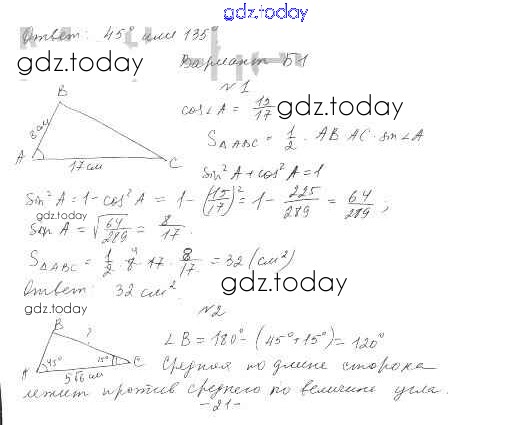 gdz.today
Ответ: 45° или 135°.
gdz.today
Вариант Б1
N1
B
8 см
A
17 см
C
cos∠A = 15/17
gdz.today
S△ABC = 1/2 · AB · AC · sin∠A
sin² A + cos² A = 1
Sin² A = 1 - cos² A = 1 - (15/17)² = 1 - 225/289 = 64/289 ;
gdz.today
Sin A = √64/289 = 8/17.
S△ABC = 1/2 · 8 · 17 · 8/17 = 32 (см²)
4
Ответ: 32 см².
gdz.today
N2
B
?
A
45°
15°
C
5√6 см
∠B = 180° - (45° + 15°) = 120°
gdz.today
Средняя по длине сторона
лежит против среднего по величине угла.
- 21 -